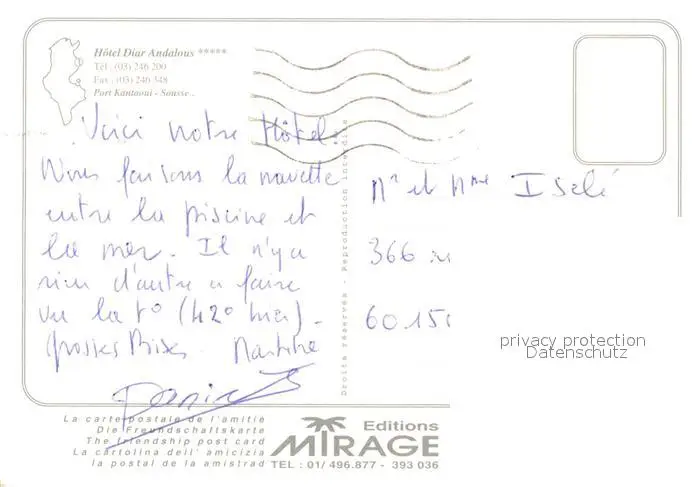 Hôtel Diar Andalous *****
Tél : (03) 246 200
Fax : (03) 246 348
Port Kantaoui - Sousse .
Voici notre Hôtel.
Nous faisons la navette
entre la piscine et
la mer. Il n'y a
rien d'autre à faire
vu la t° (42° hier).
Grosses Bises.
Droits réservés - Reproduction interdite
Mr et Mme Iselé
366
60.150
privacy protection
Datenschutz
La carte postale de l'amitié
Die Freundschaftskarte
The friendship post card
La cartolina dell' amicizia
la postal de la amistrad
Editions
MIRAGE
TEL : 01/ 496.877 - 393 036